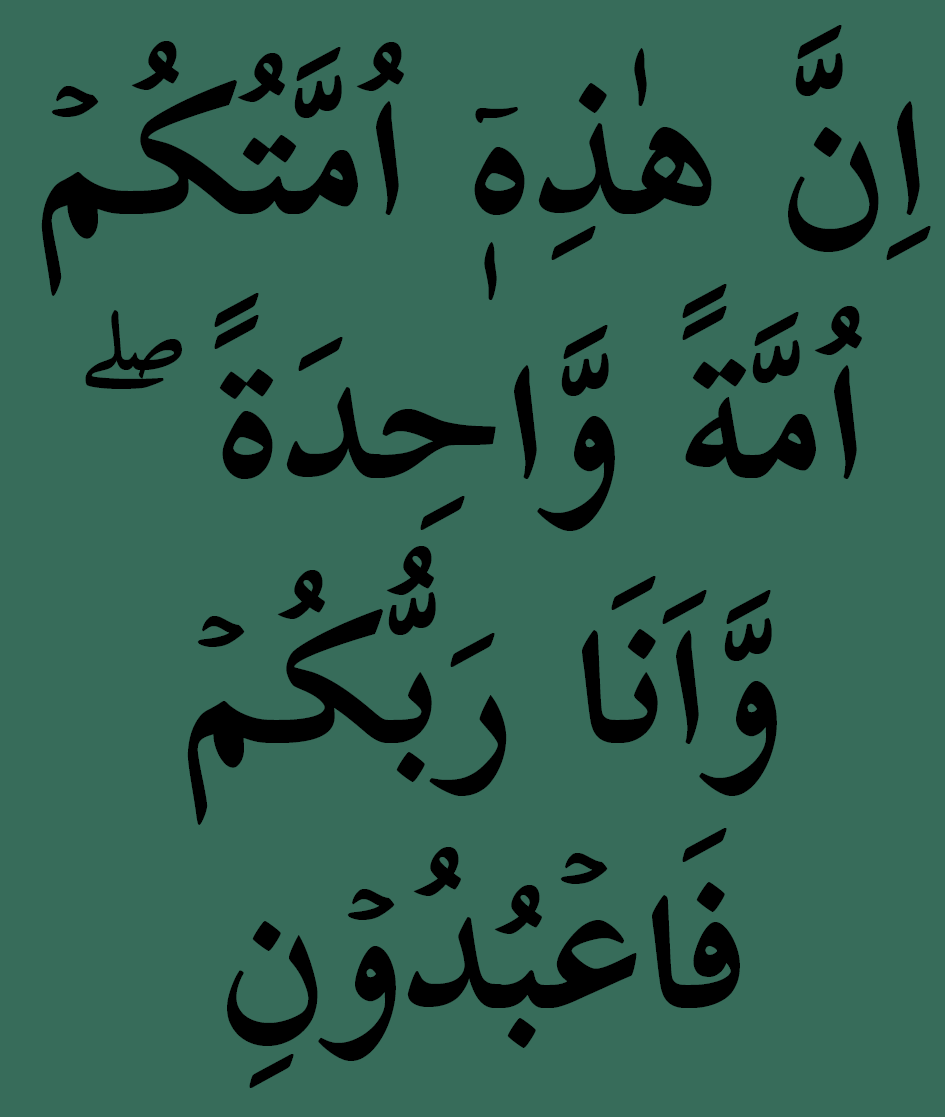 اِنَّ هٰذِهٖۤ اُمَّتُكُمْ
اُمَّةً وَّاحِدَةً ۖ
وَّاَنَا رَبُّكُمْ
فَاعْبُدُوْنِ